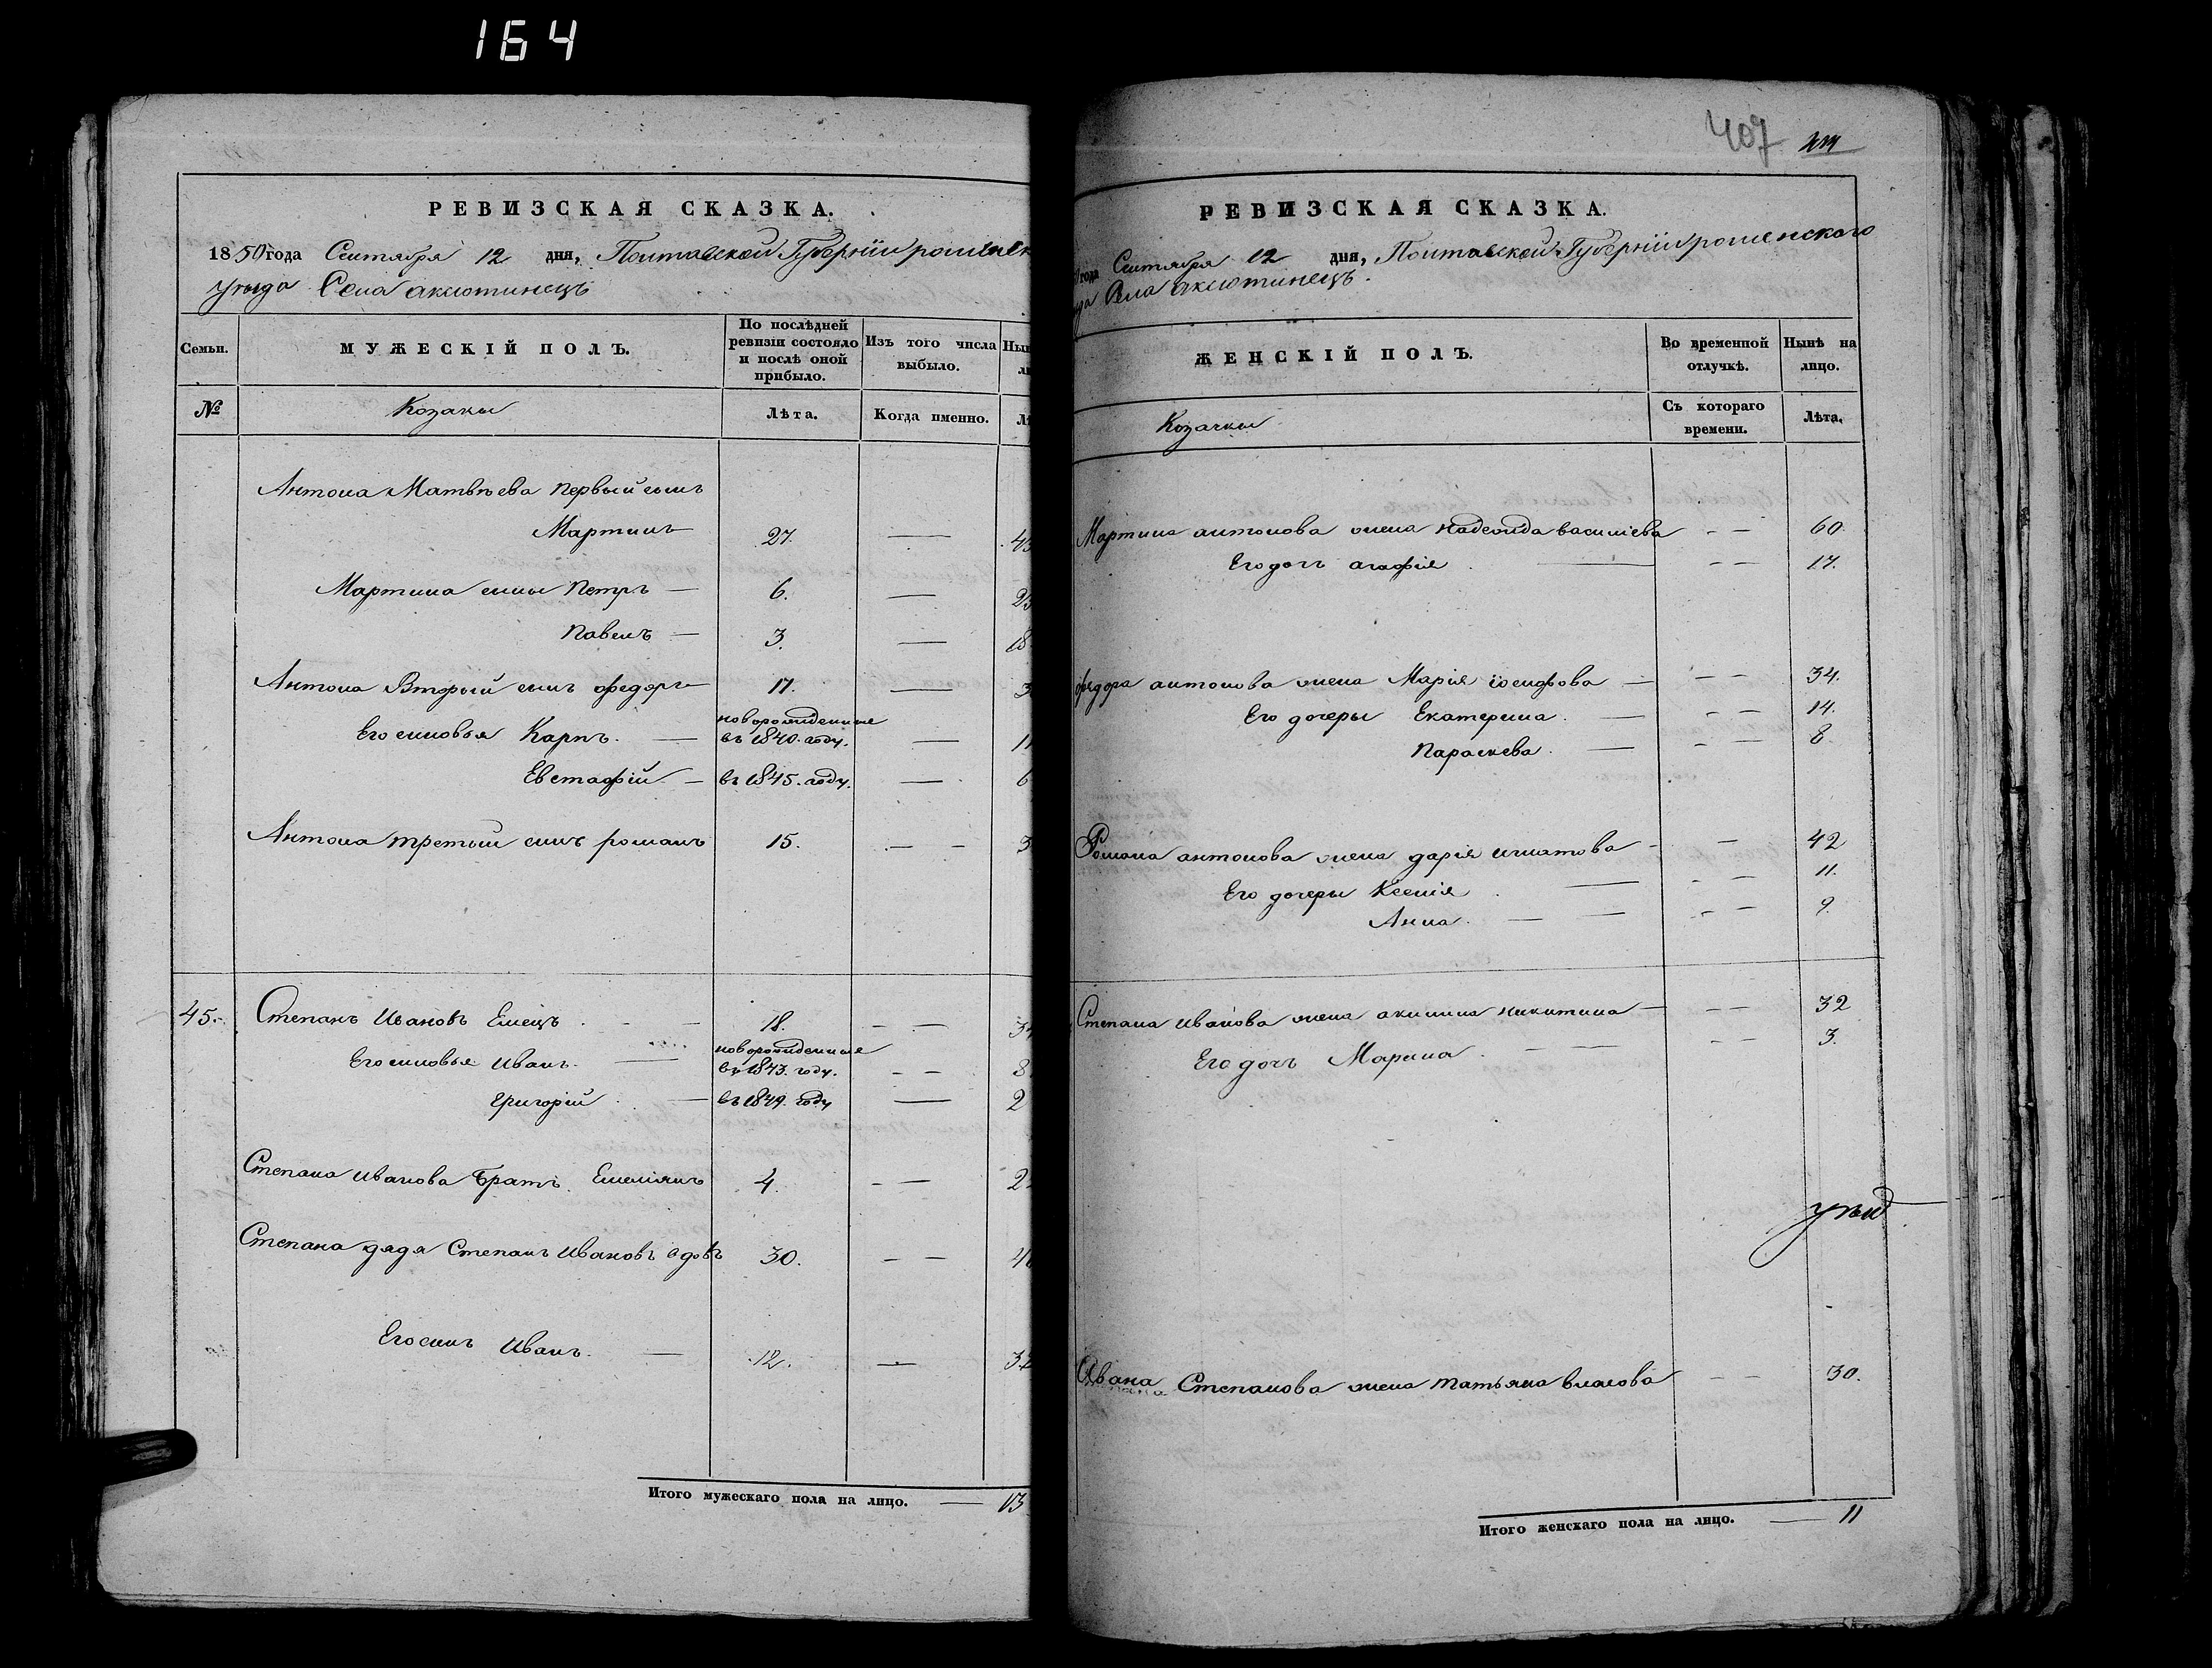 164
РЕВИЗСКАЯ СКАЗКА.
1850 года Сентября 12 дня, Полтавской Губернiи роменск
уѣзда Села аксютинецъ
Семьи.
МУЖЕСКІЙ ПОЛЪ.
По послѣдней ревизіи состояло и послѣ оной прибыло.
Изъ того числа выбыло.
Ны
№
Козаки
Лѣта.
Когда именно.
Лѣ
Антона Матвѣева первый сынъ
Мартинъ 27.
Мартина сыны Петръ — 6. —
Павелъ — 3. — 18
Антона Вторый сынъ федоръ 17. — 3
Его сыновья Карпъ. — новорожденные въ 1840. году. — 11
Евстафій. — въ 1845. году. — 6
Антона третый сынъ романъ 15. — — 3
45. Степанъ Ивановъ Емецъ. — — 18. — —
Его сыновья Иванъ. — новорожденные въ 1843. году. — — 8
Григорій. — въ 1849. году — 2
Степана Иванова братъ Емелiянъ 4. — — 2
Степана дядя Степанъ Ивановъ вдовъ 30. — — 4
Его сынъ Иванъ. — 12. — 32
Итого мужескаго пола на лицо. — 13
407
РЕВИЗСКАЯ СКАЗКА.
года Сентября 12 дня, Полтавской Губернiи роменского
да Села аксютинецъ.
ЖЕНСКІЙ ПОЛЪ.
Во временной отлучкѣ.
Нынѣ на лицо.
Козачки
Съ котораго времени.
Лѣта.
Мартина антонова жена надежда василiева — — 60.
Его дочь агафiя. — — — 17.
федора антонова жена Марiя iосифова — — — 34.
Его дочеры Екатерина. — — — 14.
Параскева. — — — 8.
Романа антонова жена дарiя игнатова — — 42
Его дочеры Ксенiя. — — — 11.
Анна. — — — — 9.
Степана Иванова жена акилина никитина — — — 32
Его дочь Марина. — — — — 3.
уѣзд
Ивана Степанова жена татьяна власова — — 30.
Итого женскаго пола на лицо. — 11